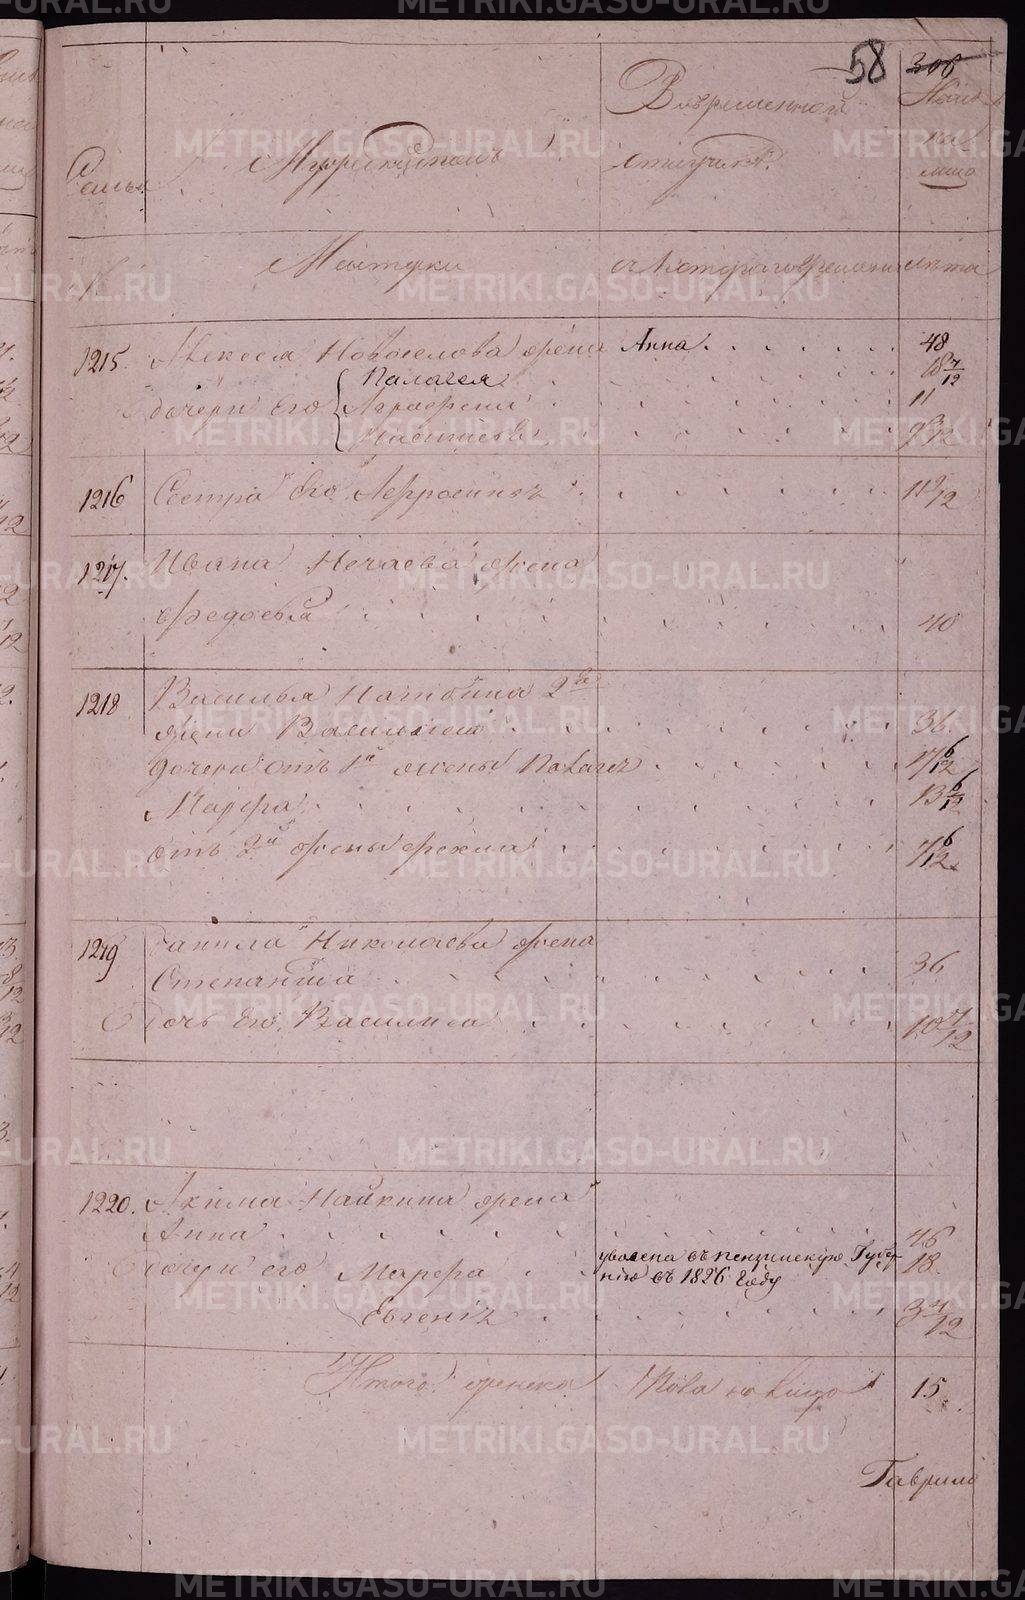 58 308
Семьи Женскiй полъ Во временной отлучкѣ Нынѣ на лицо
№ Мастерки с котораго времени лѣта
1215. Алексея Новоселова жена Анна 48
Палагея 18 7/12
дочери Его Аграфена 11
Настасья 9 3/12
1216 Сестра Его Афросинья 11 9/12
1217. Ивана Нечаева жена
Федосья 40
1218 Василья 2я
жена Василиса 36
дочери отъ 1й жены Палагея 17 6/12
Марфа 13 6/12
отъ 2й жены Фекла 7 6/12
1219 Данила Николаева жена
Степанида 36
Дочь Его Василиса 10 7/12
1220. Акима Найкина жена
Анна 46
Дочери его Марфа увезена въ пензинскую Губер- 18
нiю въ 1826 Году
Евгенiя 3 4/12
Итого женска пола на лицо 15
Гаврило
METRIKI.GASO-URAL.RU